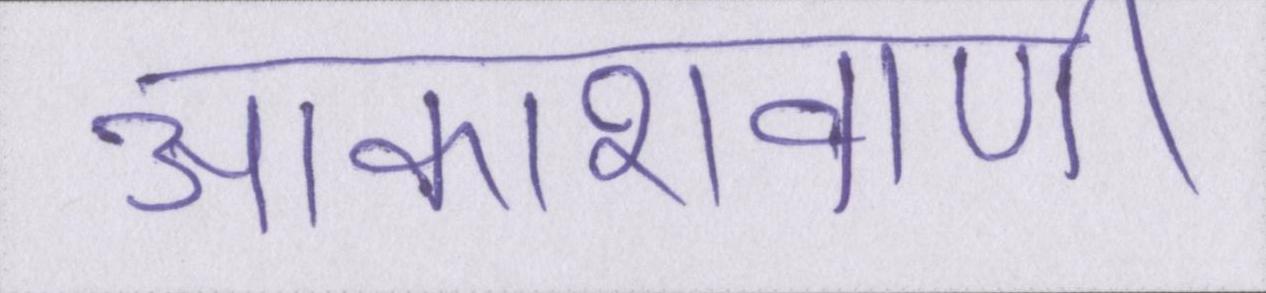 आकाशवाणी